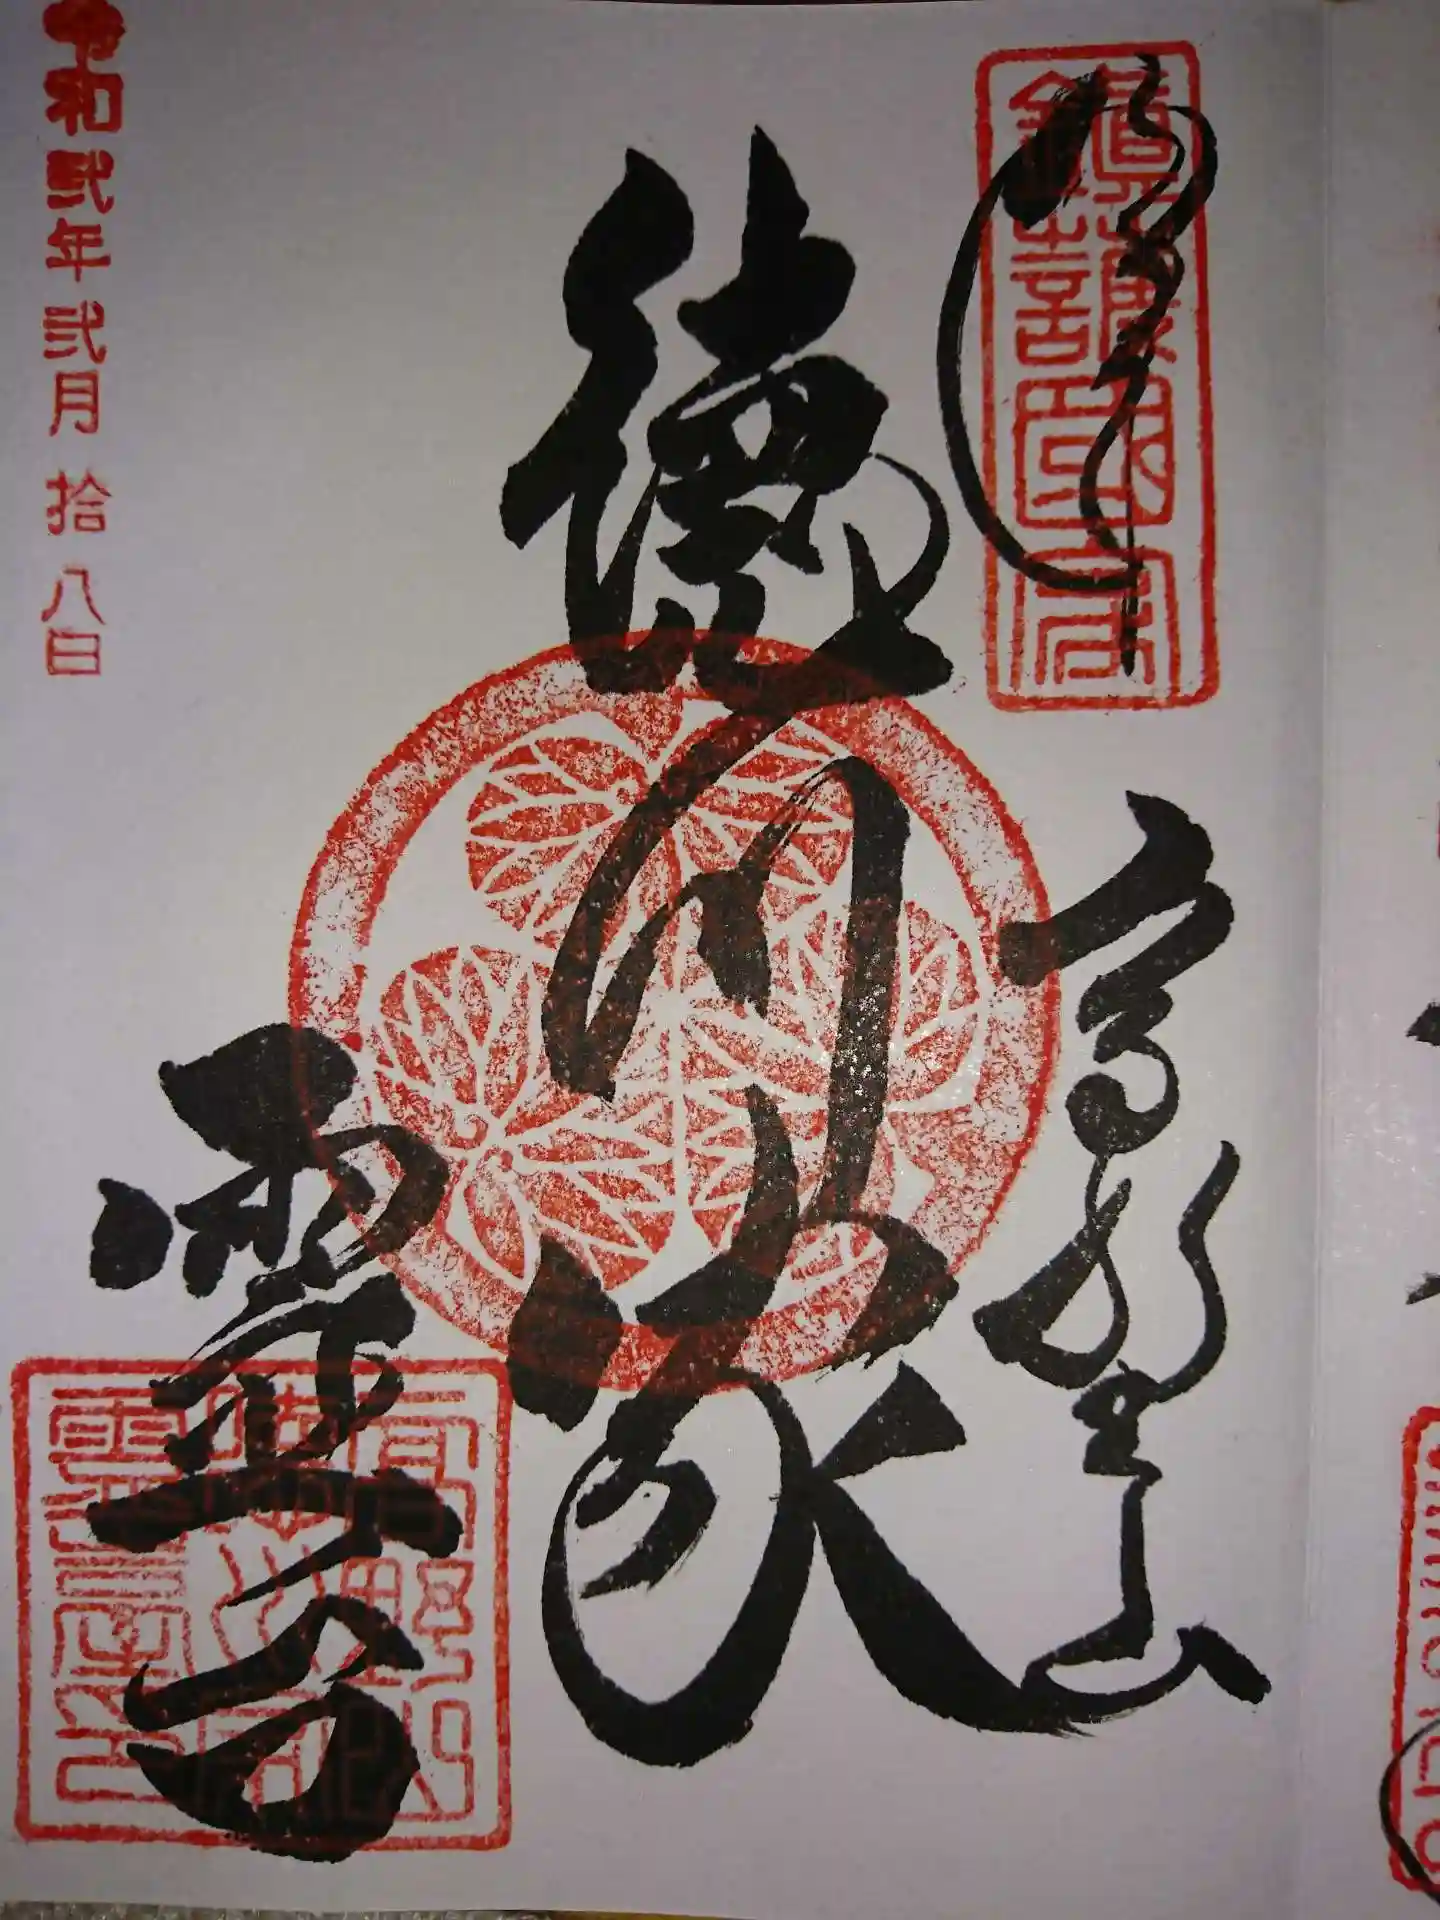 奉拝
鎮護国家
高野山
徳川家
霊台
令和弐年弐月拾八日